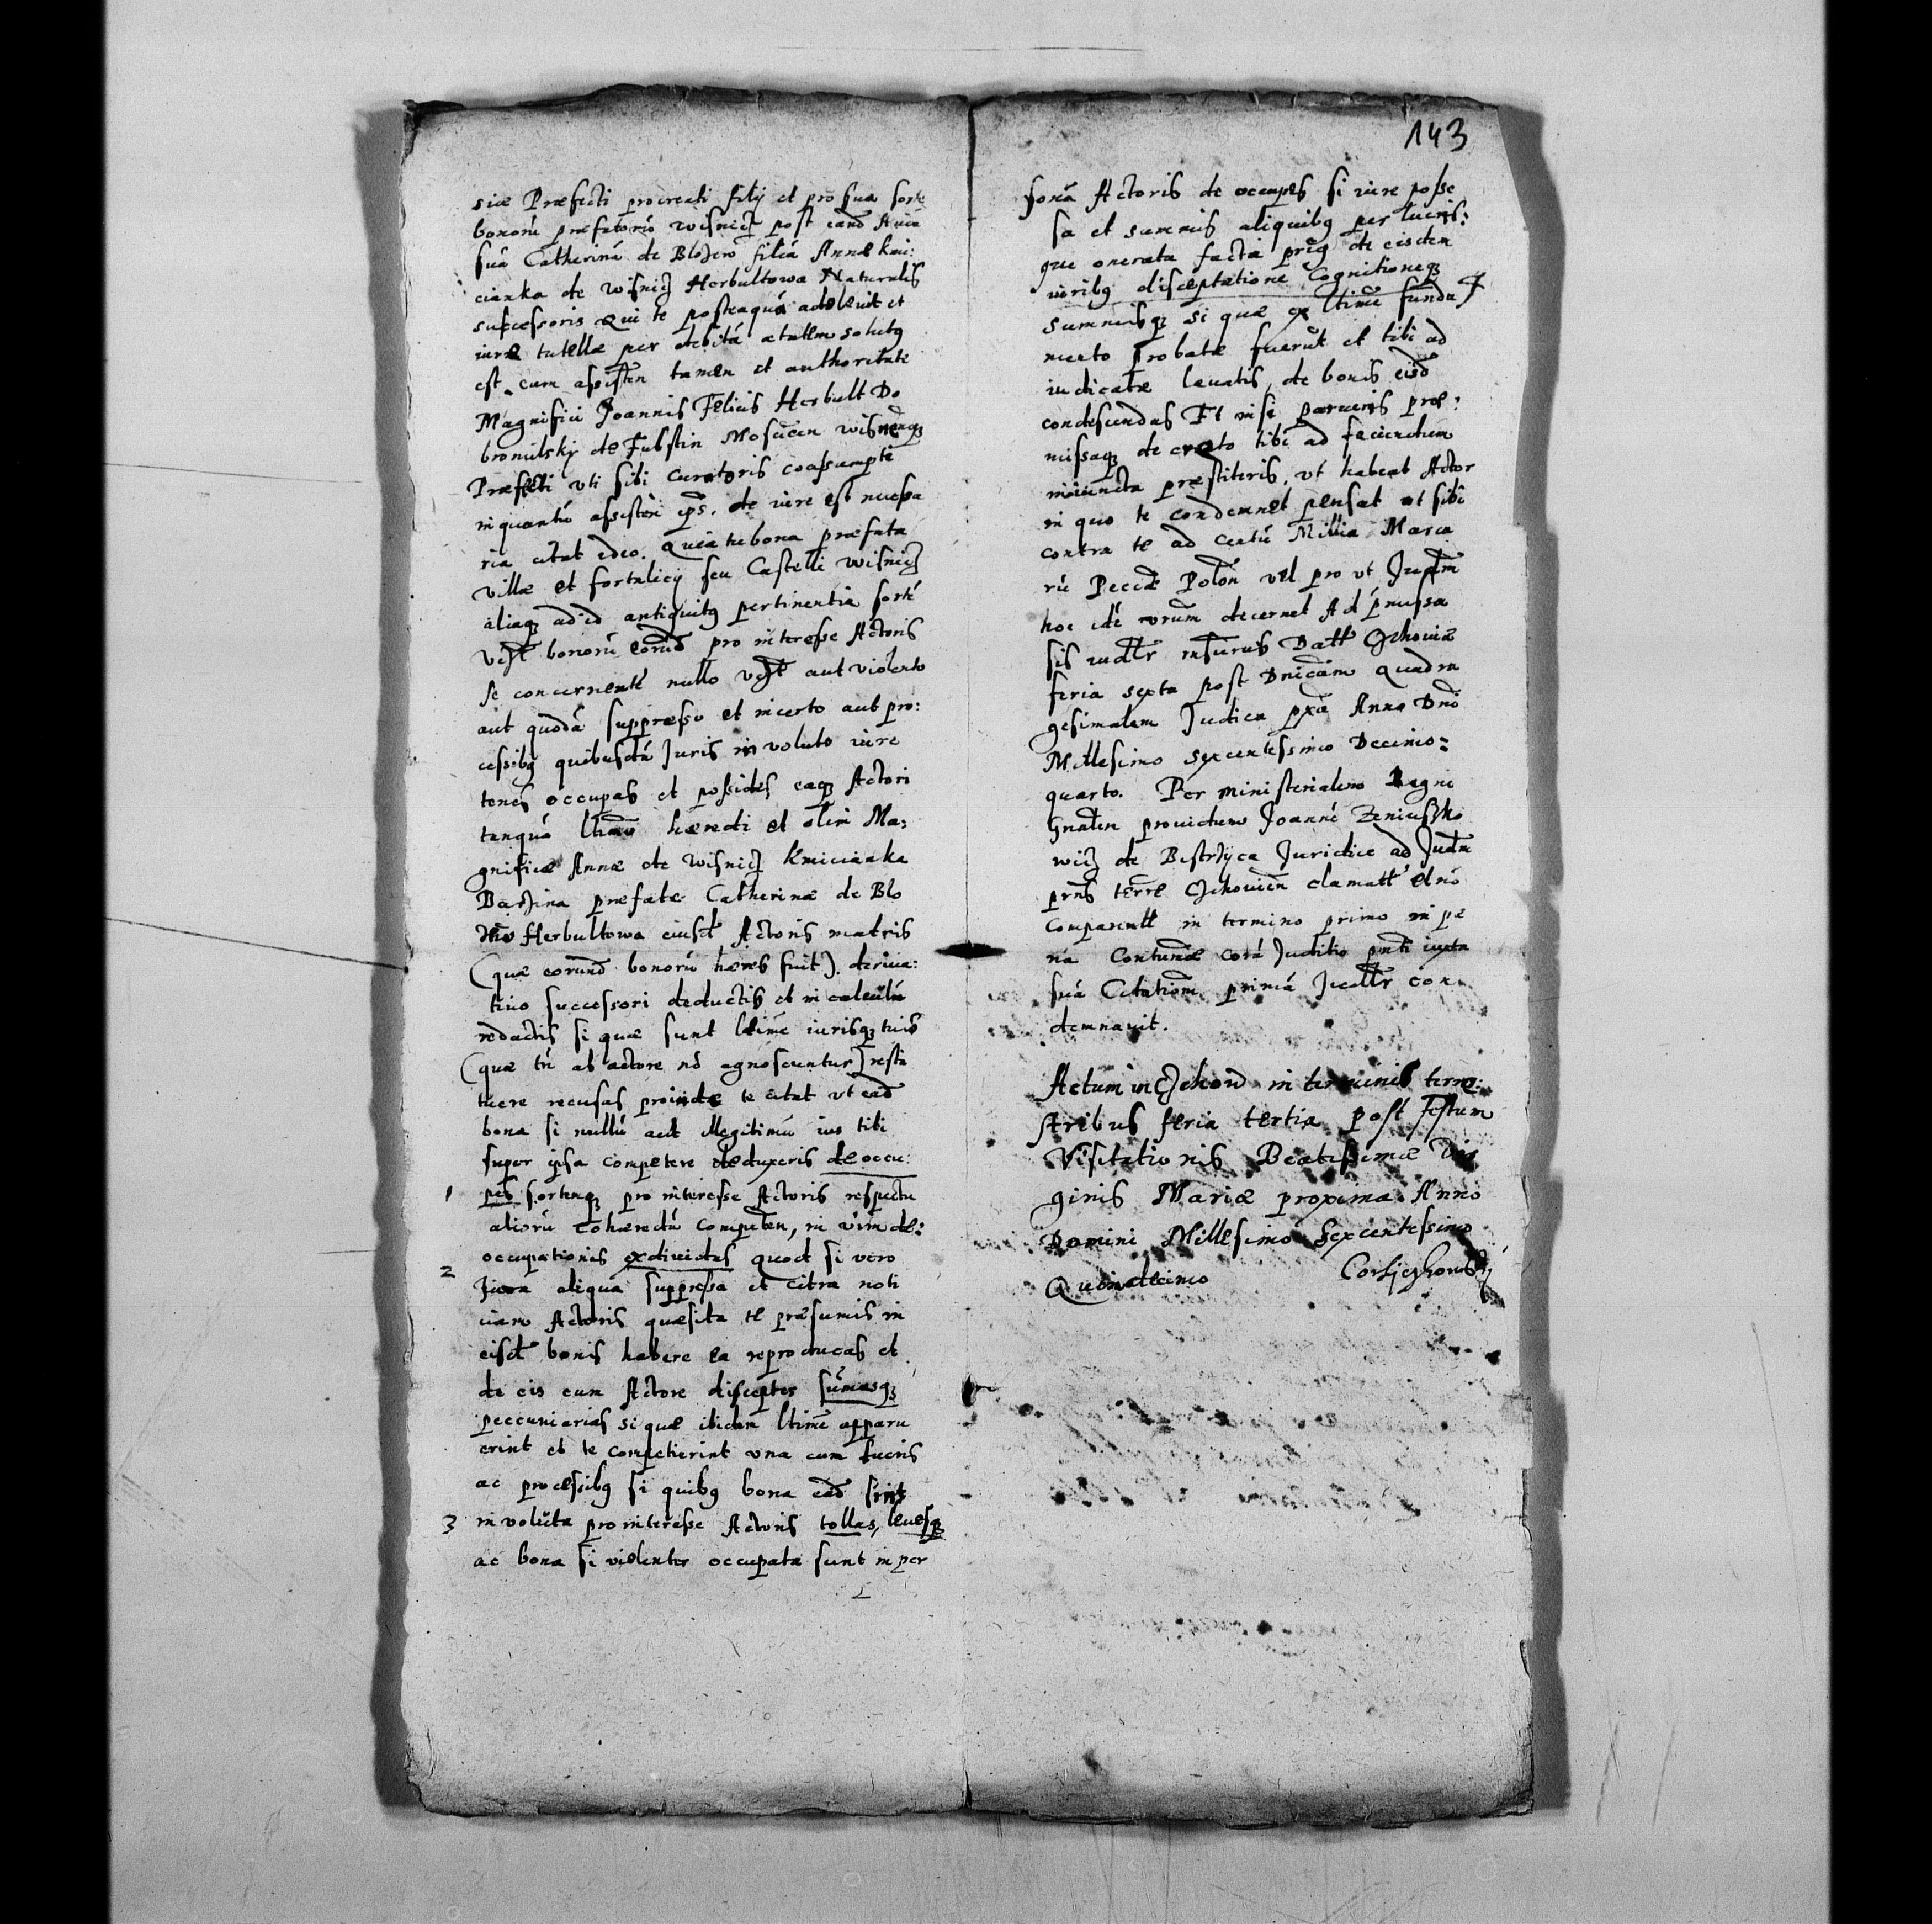 siæ Præfecti procreati filij et pro sua sorte
bonorū præfatorū wisnicz post eand Auiā
suā Catherinā de Blozew filiā Annæ kmi:
cianka de wisnicz Herbultowa Naturalis
successoris Qui te posteaquā adoleuit et
iure tutellæ per debitā ætatem solutq
est cum assisten tamen et authoritate
Magnifici Joannis Felicis Herbult Do
bromilsky de Fulstin Moscicen wisnensq
Præfecti vti sibi curatoris coassumpti
in quantū assisten ips. de iure est necessa
ria citat ideo. Quia tu bona præfata
villæ et fortalicij seu Castelli wisnicz
aliaq ad id antiquitq pertinentia sorte
vczt bonorū eorund pro interesse Actoris
se concernente nullo vczt aut violento
aut quodā suppresso et incerto aut pro:
cessibq quibusdā Juris in voluto iure
tenes occupas et possides eaq Actori
tanquā hæredi et olim Ma:
gnificæ Annæ de wisnicz kmicianka
Barzina præfatæ Catherinæ de Blo
zew Herbultowa eiusd Actoris matris
(quæ eorund bonorū hæres fuit). deriua:
tiuo successori deductis et in calculū
redactis si quæ sunt ltime iurisq tuis
(quæ tn ab actore nō agnoscuntur) resti
tuere recusas proinde te citat vt ead
bona si nullū aut illegitimū ius tibi
super ipsa competere deduxeris de occu:
1 pes sortemq pro interesse Actoris respectu
aliorū Cohæredū competen, in vim de:
occupationis exdiuidas quod si vero
2 Jura aliqua suppressa et citra noti
ciam Actoris quæsita te præsumis in
eisd bonis habere ea reproducas et
de eis cum Actore disceptes sumasq
peccuniarias si quæ ibidem ltime apparu
erint et te competierint vna cum lucris
ac processibq si quibq bona ead sint
3 in voluta pro interesse Actoris tollas, leuesq
ac bona si violenter occupata sunt in per
143
sonā Actoris de occupes si iure posse
sa et summis aliquibq per lucris:
que onerata facta priq de eisdem
iuribq disceptatione Cognitioneq
summisq si quæ ex ltime funda
mento probatæ fuerūt et tibi ad
iudicatæ leuatis, de bonis eisd
condescendas Et nisi parueris præ:
missaq decreto tibi ad faciendum
iniuncta præstiteris, vt habeat Actor
in quo te condemnet pensat ut sibi
contra te ad Centū Millia Marca
rū Pecciæ Polon vel pro vt Judm
hoc idē vrum decernet Ad pmissa
sis iudtr rnsurus Datt Czchouiæ
feria sexta post Dnicam Quadra
gesimalem Judica pxa Anno Dni
Millesimo sexcentessimo Decimo:
quarto. Per ministerialem Regni
Gnalem prouidum Joannē Zeniuszko
wicz de Bistrzyca Juridice ad Judm
prns terræ Czchouien clamatt et nō
Comparentt in termino primo in pæ
na Contumæ corā Juditio pnti iuxta
suā Citationem primā Jucdtr con
demnauit.
Actum in Czchow in terminis terre:
stribus feria tertia post Festum
Visitationis Beatissimæ Vir
ginis Mariæ proxima Anno
Domini Millesimo Sexcentessimo
Quindecimo